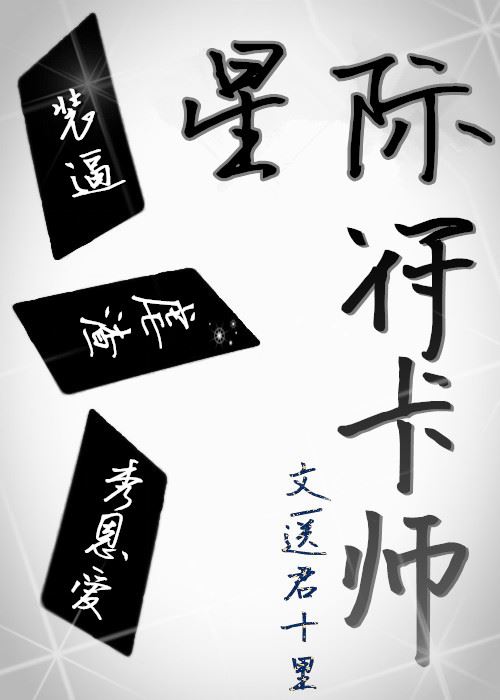 星际
符卡师
装逼
虐渣
秀恩爱
文 送君十里